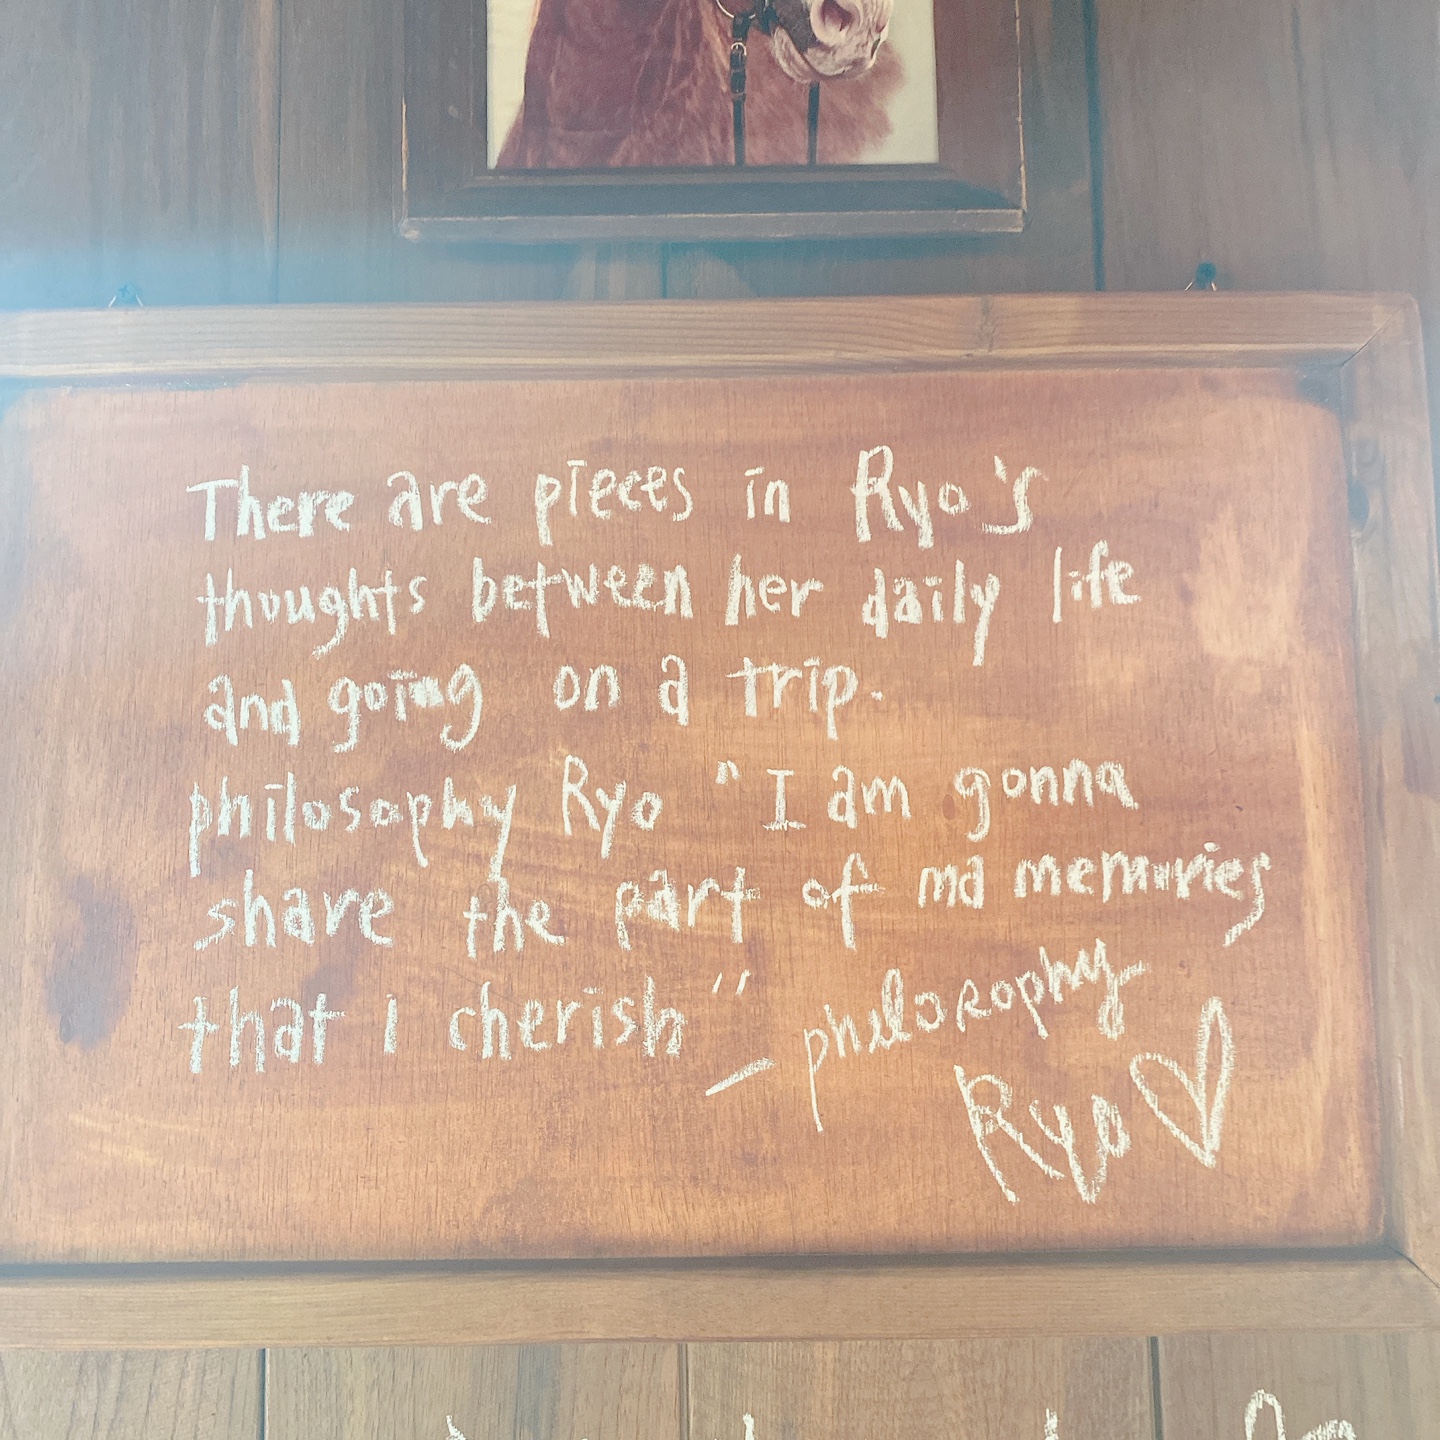 There are pieces in Ryo's
thoughts between her daily life
and going on a trip.
philosophy Ryo "I am gonna
share the part of ma memories
that I cherish"
— philosophy
Ryo